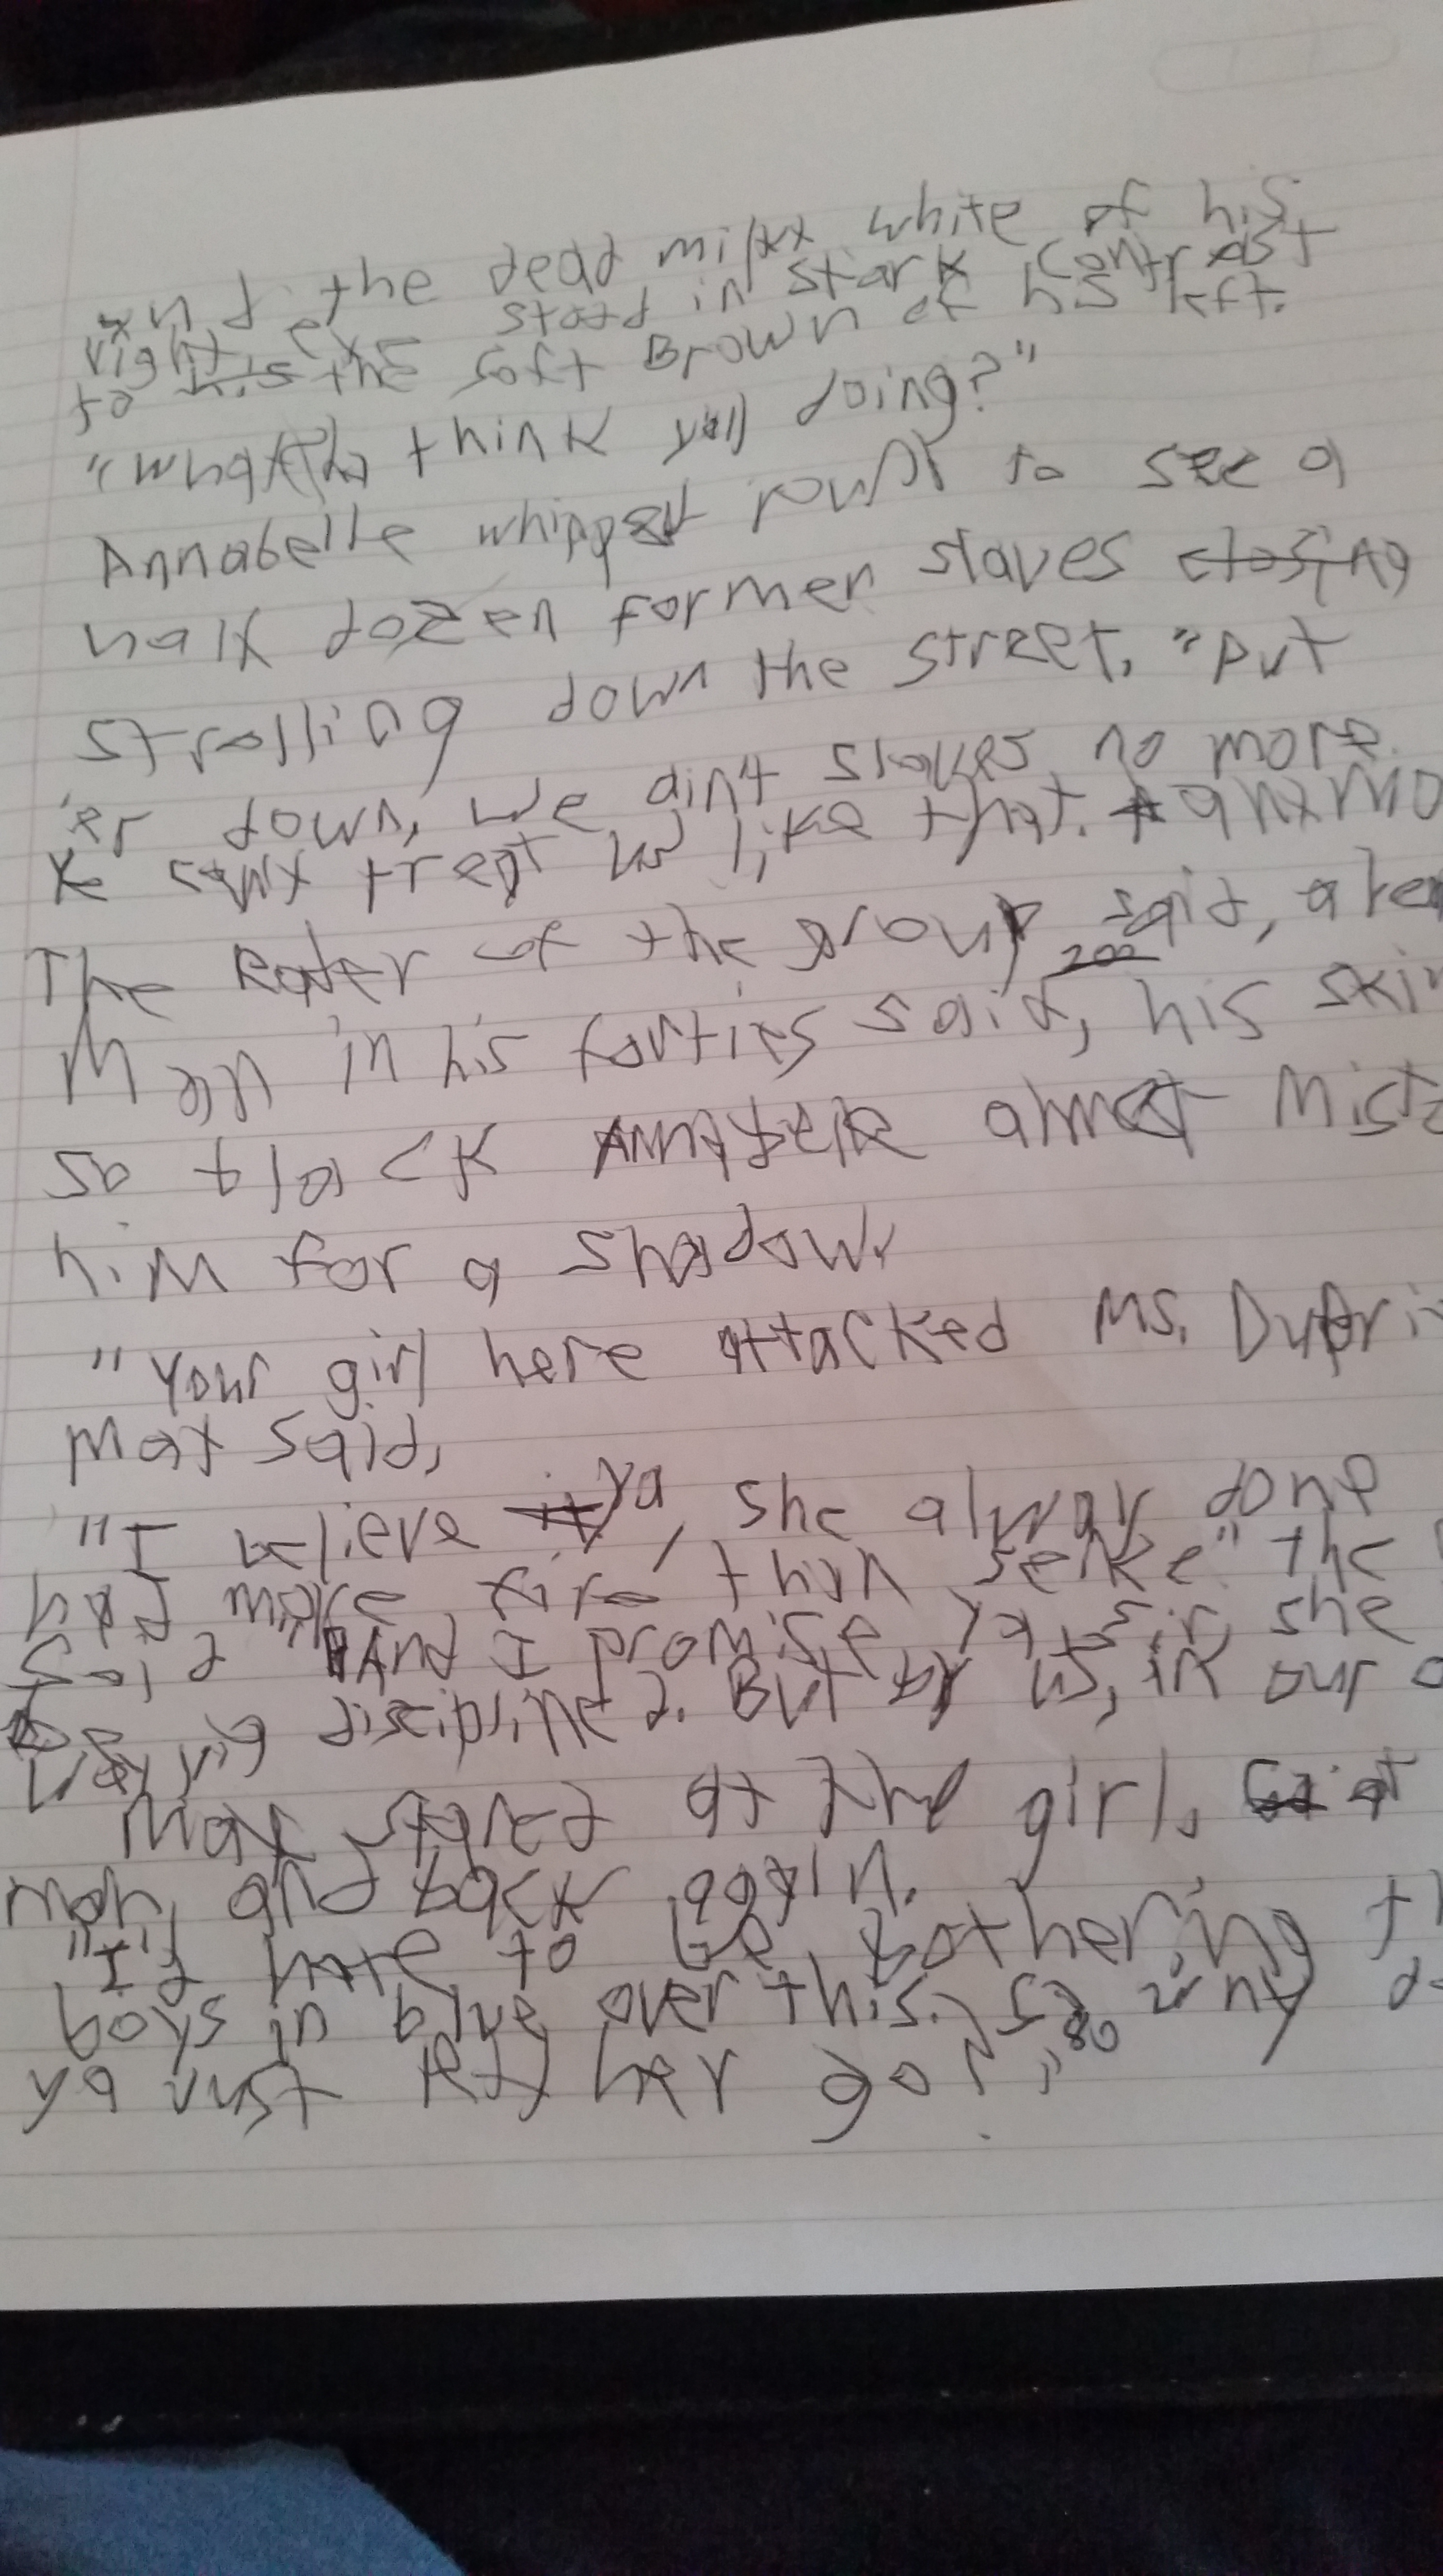 and the dead milky white of his
right eye stood in stark contrast
to his the soft Brown of his left.
"what think yall doing?"
Annabelle whipped round to see a
half dozen former slaves closing
strolling down the street. "Put
'er down, we aint slaves no more.
Ye cant treat us like that. anymo
The leader of the group said, a
Man in his forties said, his skin
so black Annabelle almost mist
him for a shadow.
"Your girl here attacked Ms.
Max said,
"I believe it ya, she always done
had more fire than sense" the
said "And I promise ya sir, she
being disciplined. But by us, in our
way
Max stared at the girl, at
man, and back again.
"I'd hate to be bothering th
boys in blue over this. So why d
ya just let her go?"